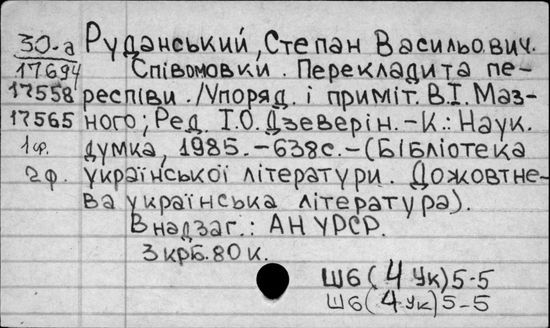 30-а Руданський, Степан Васильович.
17694 Співомовки. Переклади та пе-
17558 респіви. /Упоряд. і приміт. В.І. Маз-
17565 ного; Ред. І.О. Дзеверін. - К.: Наук.
1ф. думка, 1985. - 638с. - (Бібліотека
2ф. української літератури. Дожовтне-
ва українська література).
В надзаг.: АН УРСР.
3 крб. 80 к.
Ш6(4Ук)5-5
Ш6(4Ук)5-5